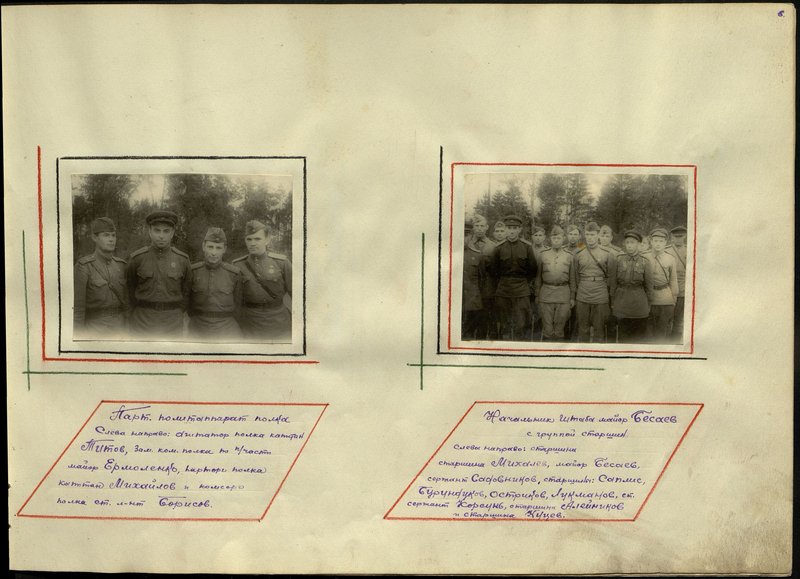 6.
Парт. политаппарат полка
Слева направо: агитатор полка капитан
Титов, зам. ком. полка по п/части
майор Ермоленко, парторг полка
капитан Михайлов и комсорг
полка ст. л-нт Борисов.
Начальник штаба майор Бесаев
с группой старшин
Слева направо: старшина
старшина Михалев, майор Бесаев,
сержант Садовников, старшины: Сапмис,
Бурундуков, Остриков, Лукманов, ст.
сержант Корсунь, старшины Алейников
и старшина Куцев.